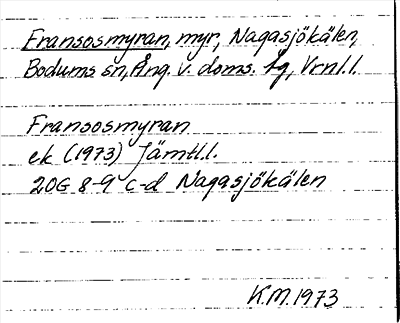 Fransosmyran, myr, Nagasjökälen,
Bodums sn, Ång. v. doms. tg, Vrnl.l.
Fransosmyran
ek (1973) Jämtl.l.
20G 8-9 c-d Nagasjökälen
K.M. 1973